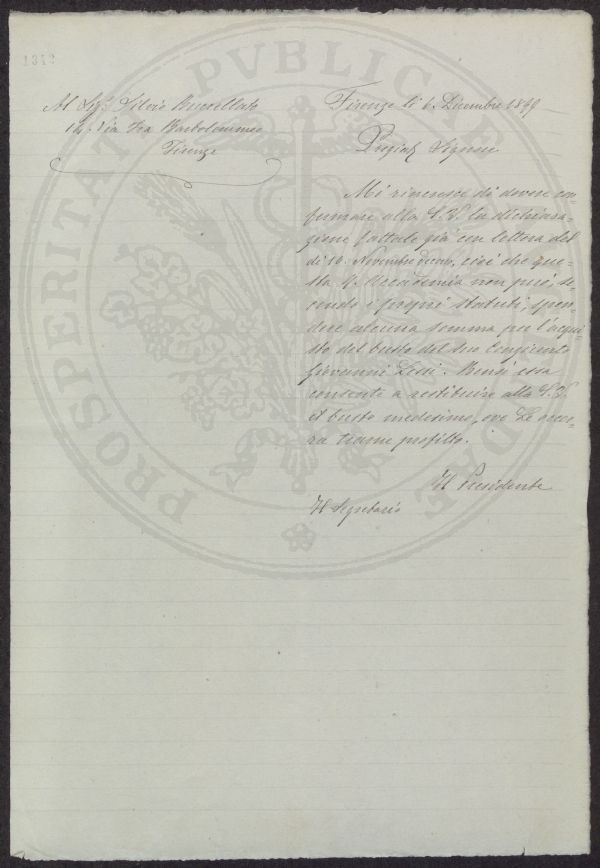 1342
Al Sig.r Silvio Buccellato
14. Via Fra Bartolommeo
Firenze
Firenze li 6. Dicembre 1869
Pregiat. Signore
Mi rincresce di dovere con-
fermare alla S.V. la dichiara-
zione fattale già con lettera del
dì 16. Novembre decorso, cioè che que-
sta R. Accademia non può, se-
condo i propri statuti, spen-
dere alcuna somma per l'acqui-
sto del busto del suo Congiunto
Giovanni Lessi. Bensì essa
consente a restituire alla S.V.
il busto medesimo, ove Le occor-
ra trarne profitto.
Il Presidente
Il Segretario
PROSPERITATI PVBLICAE